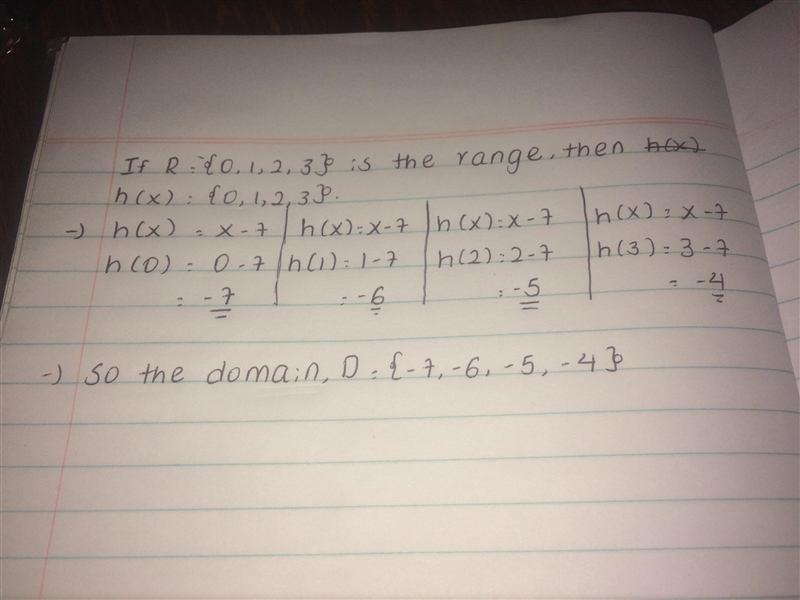 If R = {0, 1, 2, 3} is the range, then h(x)
h(x) = {0, 1, 2, 3}.
→ h(x) = x - 7 | h(x) = x - 7 | h(x) = x - 7 | h(x) = x - 7
h(0) = 0 - 7 | h(1) = 1 - 7 | h(2) = 2 - 7 | h(3) = 3 - 7
= -7 | = -6 | = -5 | = -4
→ So the domain, D = {-7, -6, -5, -4}